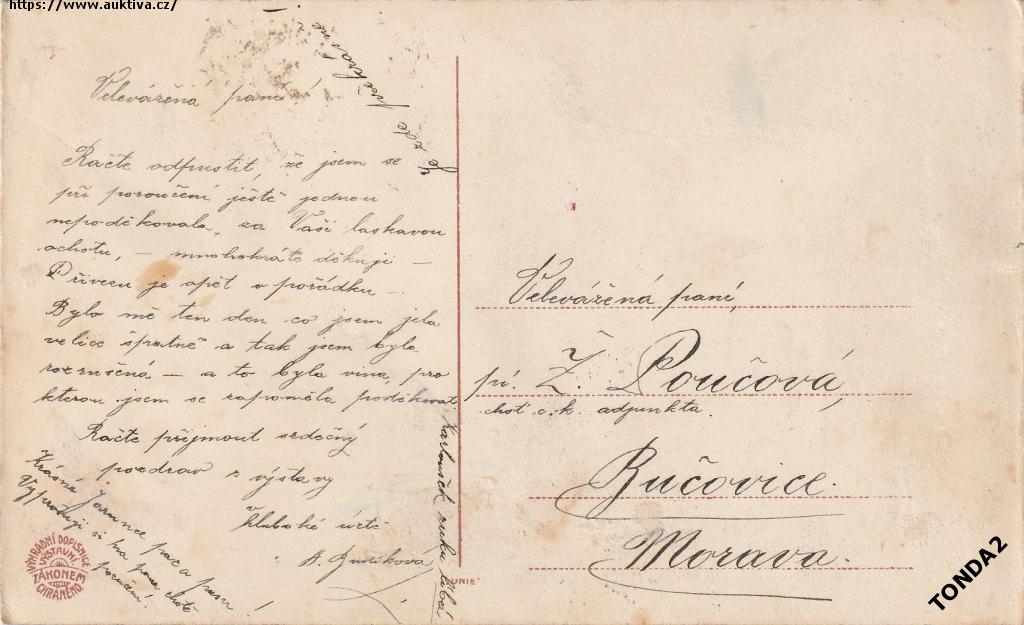 https://www.auktiva.cz/
Je zde překrásně
Velevážená paní!
Račte odpustit, že jsem se
při poroučení ještě jednou
nepoděkovala, za Vaši laskavou
ochotu, — mnohokráte děkuji —
Přívezu je opět v pořádku —
Bylo mě ten den co jsem jela
velice špatně a tak jsem byla
rozrušená — a to byla vina, pro
kterou jsem se zapoměla poděkovat.
Račte přijmout srdečný
pozdrav z výstavy
v hluboké úctě
A.
Krásné pac a pusu!
Vyprošuji si na pana chotě
poručení!
Karloušek ruku líbá
VÝHRADNÍ DOPISNICE
VÝSTAVNÍ
ZÁKONEM
CHRÁNĚNO.
UNIE
Velevážená paní,
pí. Ž. Poučová,
choť c. k. adjunkta.
Bučovice.
Morava.
TONDA2